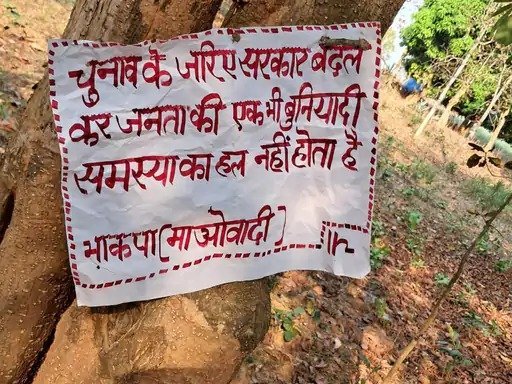 चुनाव के जरिए सरकार बदल
कर जनता की एक भी बुनियादी
समस्या का हल नहीं होता है
भाकपा (माओवादी)